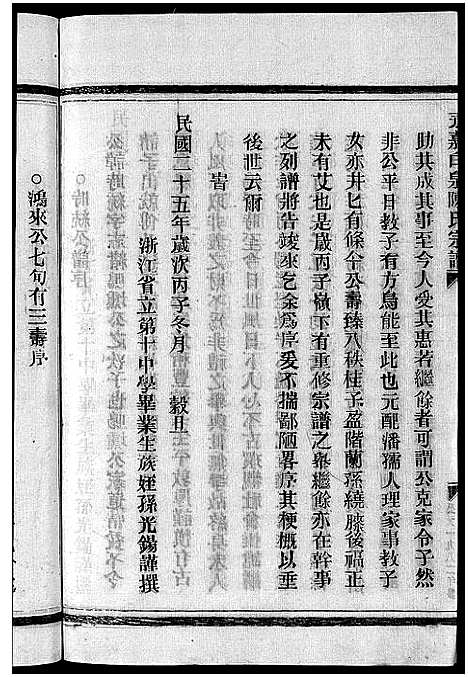 助共成其事至今人受其惠若繼餘者可謂公克家令子然
非公平日教子有方烏能至此也元配潘孺人理家事教子
女亦井匕有條今公壽臻八秩桂子盈階蘭孫繞膝後福正
未有艾也是歲丙子橔下有重修宗譜之舉繼餘亦在幹事
之列譜將告竣來乞余爲序爰不揣鄙陋畧序其梗概以垂
後世云爾
旹
民國二十五年歲次丙子冬月 穀旦
浙江省立第十中學畢業生族姪孫光錫謹撰
○鴻來公七旬有三壽序
陳氏宗譜